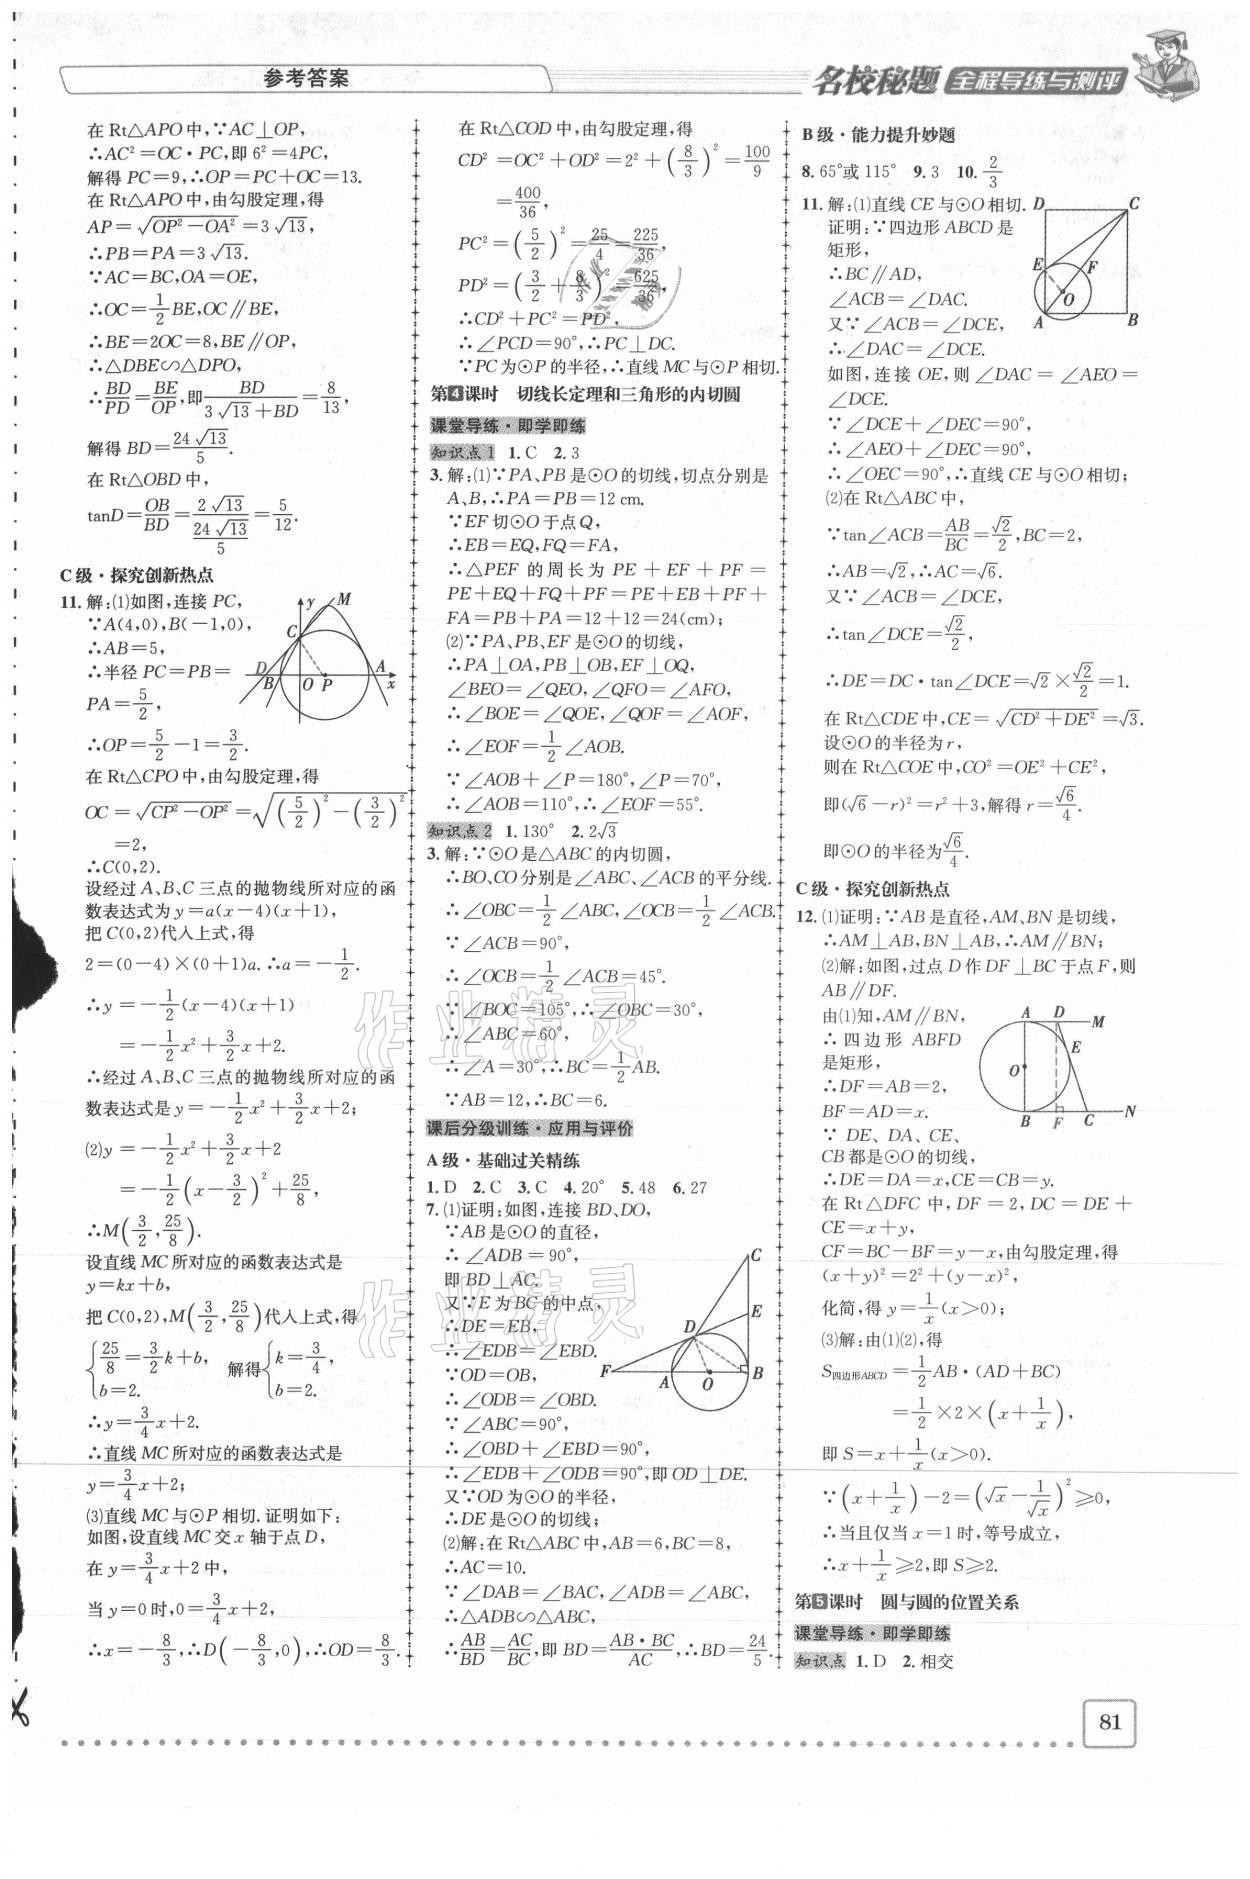 参考答案
名校秘题 全程导练与测评
在Rt△APO中,∵AC⊥OP,
∴AC²=OC·PC,即6²=4PC,
解得PC=9,∴OP=PC+OC=13.
在Rt△APO中,由勾股定理,得
AP=√(OP²-OA²)=3√13,
∴PB=PA=3√13.
∵AC=BC,OA=OE,
∴OC=1/2BE,OC∥BE,
∴BE=2OC=8,BE∥OP,
∴△DBE∽△DPO,
∴BD/PD=BE/OP,即BD/(3√13+BD)=8/13,
解得BD=24√13/5.
在Rt△OBD中,
tanD=OB/BD=2√13/(24√13/5)=5/12.
C级·探究创新热点
11.解:(1)如图,连接PC,
∵A(4,0),B(-1,0),
∴AB=5,
∴半径PC=PB=
PA=5/2,
∴OP=5/2-1=3/2.
y M C D B O P A x
在Rt△CPO中,由勾股定理,得
OC=√(CP²-OP²)=√((5/2)²-(3/2)²)
=2,
∴C(0,2).
设经过A、B、C三点的抛物线所对应的函
数表达式为y=a(x-4)(x+1),
把C(0,2)代入上式,得
2=(0-4)×(0+1)a.∴a=-1/2.
∴y=-1/2(x-4)(x+1)
=-1/2x²+3/2x+2.
∴经过A、B、C三点的抛物线所对应的函
数表达式是y=-1/2x²+3/2x+2;
(2)y=-1/2x²+3/2x+2
=-1/2(x-3/2)²+25/8,
∴M(3/2,25/8).
设直线MC所对应的函数表达式是
y=kx+b,
把C(0,2),M(3/2,25/8)代入上式,得
{25/8=3/2k+b, b=2. 解得{k=3/4, b=2.
∴y=3/4x+2.
∴直线MC所对应的函数表达式是
y=3/4x+2;
(3)直线MC与⊙P相切.证明如下:
如图,设直线MC交x轴于点D,
在y=3/4x+2中,
当y=0时,0=3/4x+2,
∴x=-8/3,∴D(-8/3,0),∴OD=8/3.
在Rt△COD中,由勾股定理,得
CD²=OC²+OD²=2²+(8/3)²=100/9
=400/36,
PC²=(5/2)²=25/4=225/36,
PD²=(3/2+8/3)²=625/36,
∴CD²+PC²=PD²,
∴∠PCD=90°,∴PC⊥DC.
∵PC为⊙P的半径,∴直线MC与⊙P相切.
第4课时 切线长定理和三角形的内切圆
课堂导练·即学即练
知识点1 1.C 2.3
3.解:(1)∵PA、PB是⊙O的切线,切点分别是
A、B,∴PA=PB=12 cm.
∵EF切⊙O于点Q,
∴EB=EQ,FQ=FA,
∴△PEF的周长为PE+EF+PF=
PE+EQ+FQ+PF=PE+EB+PF+
FA=PB+PA=12+12=24(cm);
(2)∵PA、PB、EF是⊙O的切线,
∴PA⊥OA,PB⊥OB,EF⊥OQ,
∠BEO=∠QEO,∠QFO=∠AFO,
∴∠BOE=∠QOE,∠QOF=∠AOF,
∴∠EOF=1/2∠AOB.
∵∠AOB+∠P=180°,∠P=70°,
∴∠AOB=110°,∴∠EOF=55°.
知识点2 1.130° 2.2√3
3.解:∵⊙O是△ABC的内切圆,
∴BO、CO分别是∠ABC、∠ACB的平分线.
∴∠OBC=1/2∠ABC,∠OCB=1/2∠ACB.
∵∠ACB=90°,
∴∠OCB=1/2∠ACB=45°.
∵∠BOC=105°,∴∠OBC=30°,
∴∠ABC=60°,
∴∠A=30°,∴BC=1/2AB.
∵AB=12,∴BC=6.
课后分级训练·应用与评价
A级·基础过关精练
1.D 2.C 3.C 4.20° 5.48 6.27
7.(1)证明:如图,连接BD、DO,
∵AB是⊙O的直径,
∴∠ADB=90°,
即BD⊥AC.
又∵E为BC的中点,
∴DE=EB,
∴∠EDB=∠EBD.
∵OD=OB,
∴∠ODB=∠OBD.
∵∠ABC=90°,
∴∠OBD+∠EBD=90°,
∴∠EDB+∠ODB=90°,即OD⊥DE.
又∵OD为⊙O的半径,
∴DE是⊙O的切线;
C E D F A O B
(2)解:在Rt△ABC中,AB=6,BC=8,
∴AC=10.
∵∠DAB=∠BAC,∠ADB=∠ABC,
∴△ADB∽△ABC,
∴AB/BD=AC/BC,即BD=AB·BC/AC,∴BD=24/5.
B级·能力提升妙题
8.65°或115° 9.3 10.2/3
11.解:(1)直线CE与⊙O相切.
证明:∵四边形ABCD是
矩形,
∴BC∥AD,
∠ACB=∠DAC.
又∵∠ACB=∠DCE,
∴∠DAC=∠DCE.
D C E F O A B
如图,连接OE,则∠DAC=∠AEO=
∠DCE.
∵∠DCE+∠DEC=90°,
∴∠AEO+∠DEC=90°,
∴∠OEC=90°,∴直线CE与⊙O相切;
(2)在Rt△ABC中,
∵tan∠ACB=AB/BC=√2/2,BC=2,
∴AB=√2,∴AC=√6.
又∵∠ACB=∠DCE,
∴tan∠DCE=√2/2,
∴DE=DC·tan∠DCE=√2×√2/2=1.
在Rt△CDE中,CE=√(CD²+DE²)=√3.
设⊙O的半径为r,
则在Rt△COE中,CO²=OE²+CE²,
即(√6-r)²=r²+3,解得r=√6/4.
即⊙O的半径为√6/4.
C级·探究创新热点
12.(1)证明:∵AB是直径,AM、BN是切线,
∴AM⊥AB,BN⊥AB,∴AM∥BN;
(2)解:如图,过点D作DF⊥BC于点F,则
AB∥DF.
由(1)知,AM∥BN,
∴四边形ABFD
是矩形,
∴DF=AB=2,
BF=AD=x.
∵DE、DA、CE、
CB都是⊙O的切线,
A D M E O B F C N
∴DE=DA=x,CE=CB=y.
在Rt△DFC中,DF=2,DC=DE+
CE=x+y,
CF=BC-BF=y-x,由勾股定理,得
(x+y)²=2²+(y-x)²,
化简,得y=1/x(x>0);
(3)解:由(1)(2),得
S四边形ABCD=1/2AB·(AD+BC)
=1/2×2×(x+1/x),
即S=x+1/x(x>0).
∵(x+1/x)-2=(√x-1/√x)²≥0,
∴当且仅当x=1时,等号成立,
∴x+1/x≥2,即S≥2.
第5课时 圆与圆的位置关系
课堂导练·即学即练
知识点 1.D 2.相交
81
作业精灵
作业精灵